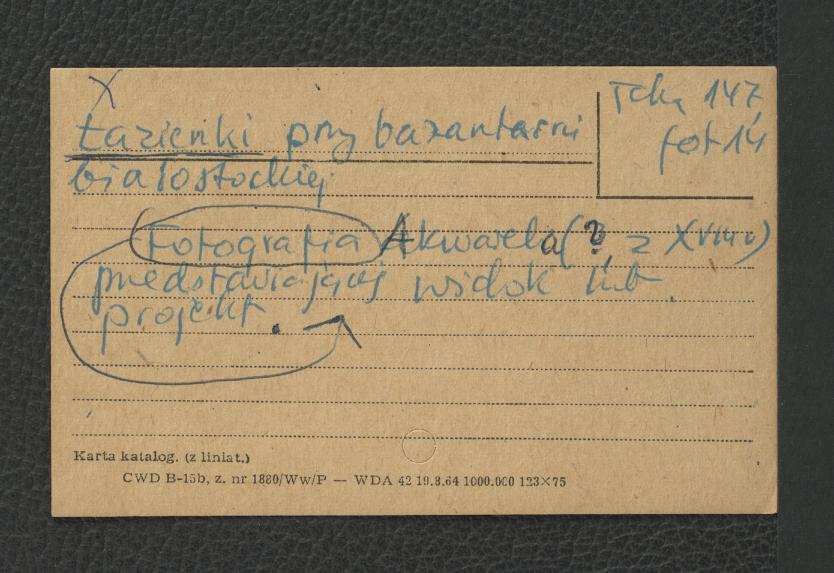 X
Teka 147,
fot 14
Łazienki przy bażantarni
białostockiej
Fotografia Akwarela (?, z XVIII w)
przedstawiającej widok lub
projekt.
Karta katalog. (z liniat.)
CWD B-15b, z. nr 1880/Ww/P — WDA 42 19.8.64 1000.000 123×75